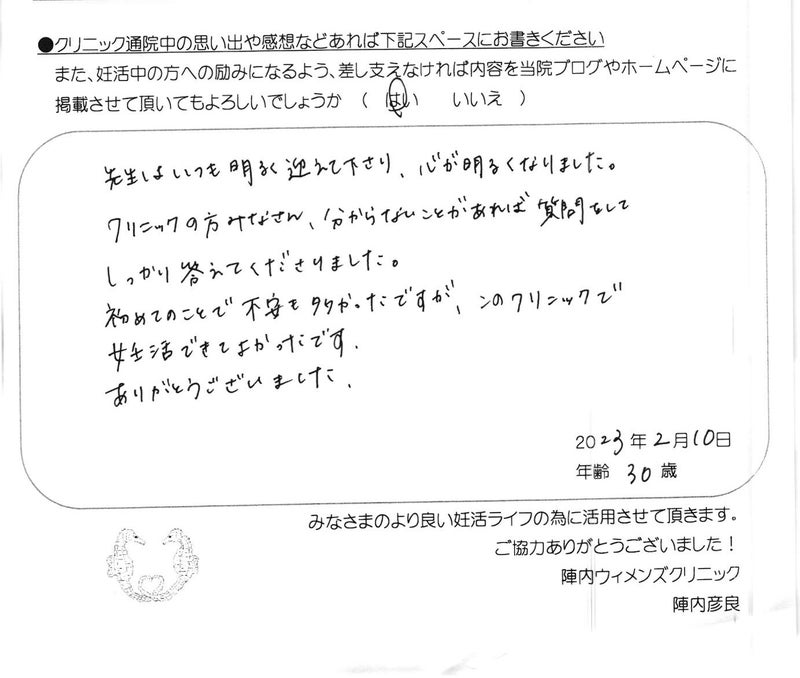 ●クリニック通院中の思い出や感想などあれば下記スペースにお書きください
また、妊活中の方への励みになるよう、差し支えなければ内容を当院ブログやホームページに
掲載させて頂いてもよろしいでしょうか （ はい いいえ ）
先生はいつも明るく迎えて下さり、心が明るくなりました。
クリニックの方みなさん、分からないことがあれば質問をして
しっかり答えてくださりました。
初めてのことで不安も多かったですが、このクリニックで
妊活できてよかったです.
ありがとうございました.
2023年2月10日
年齢 30歳
みなさまのより良い妊活ライフの為に活用させて頂きます。
ご協力ありがとうございました！
陣内ウィメンズクリニック
陣内彦良